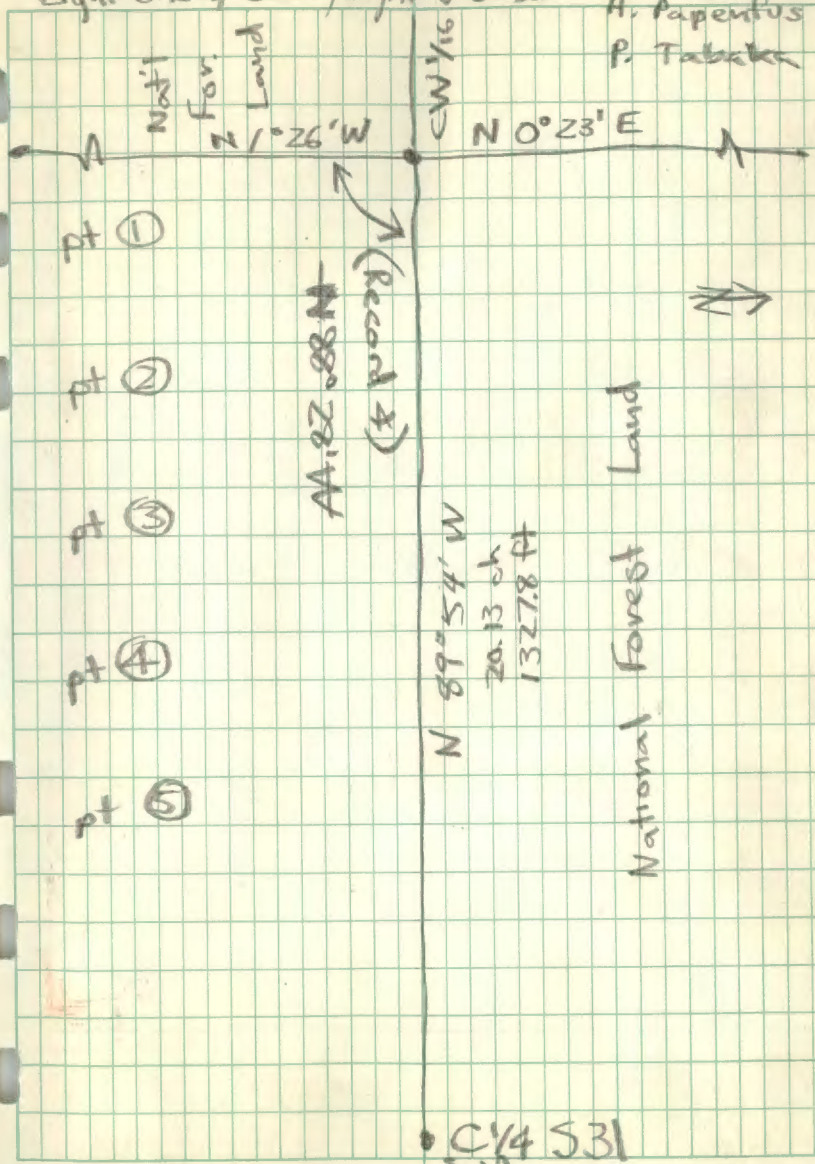 H. Papentus
P. Tabaka
Nat'l
For.
Land
CW 1/16
N 1°26'W
N 0°23'E
pt ①
pt ②
pt ③
pt ④
pt ⑤
88°28'
(Record ∡)
N 89°54' W
20.13 ch
1327.8 ft
National Forest Land
N
C 1/4 S31